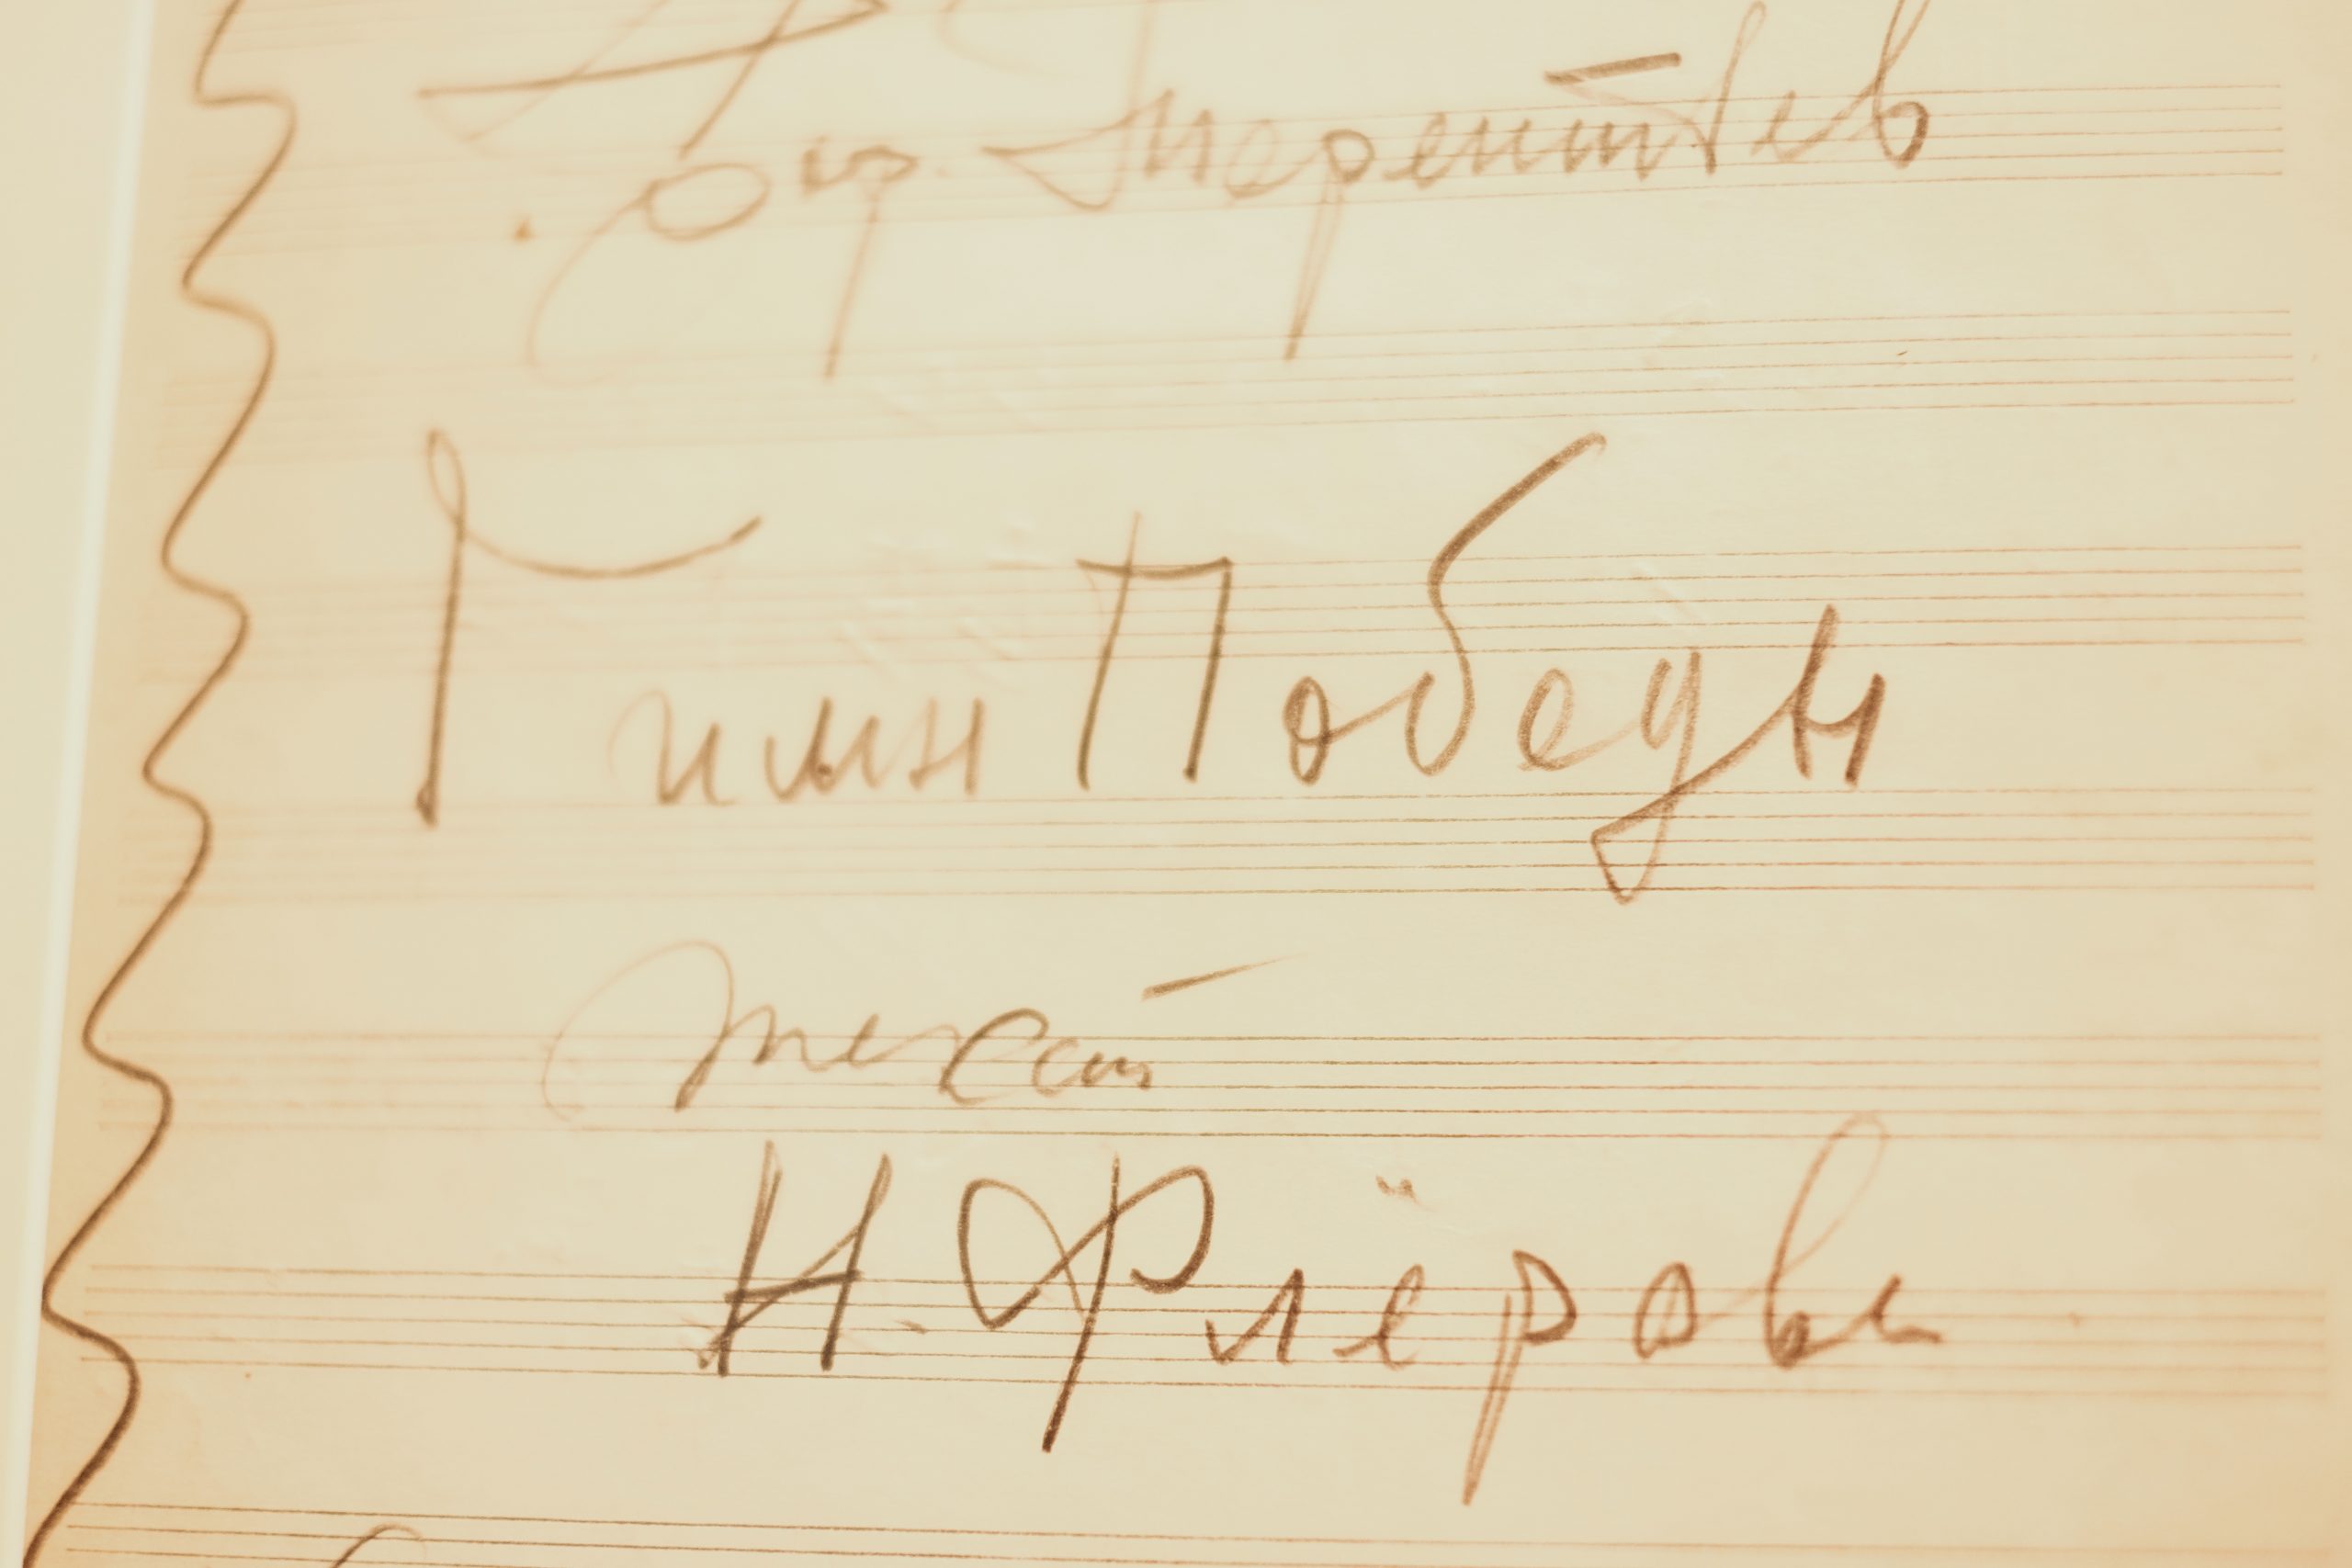 Бор. Терентьев
Гимн Победы
текст
Н. Флёрова